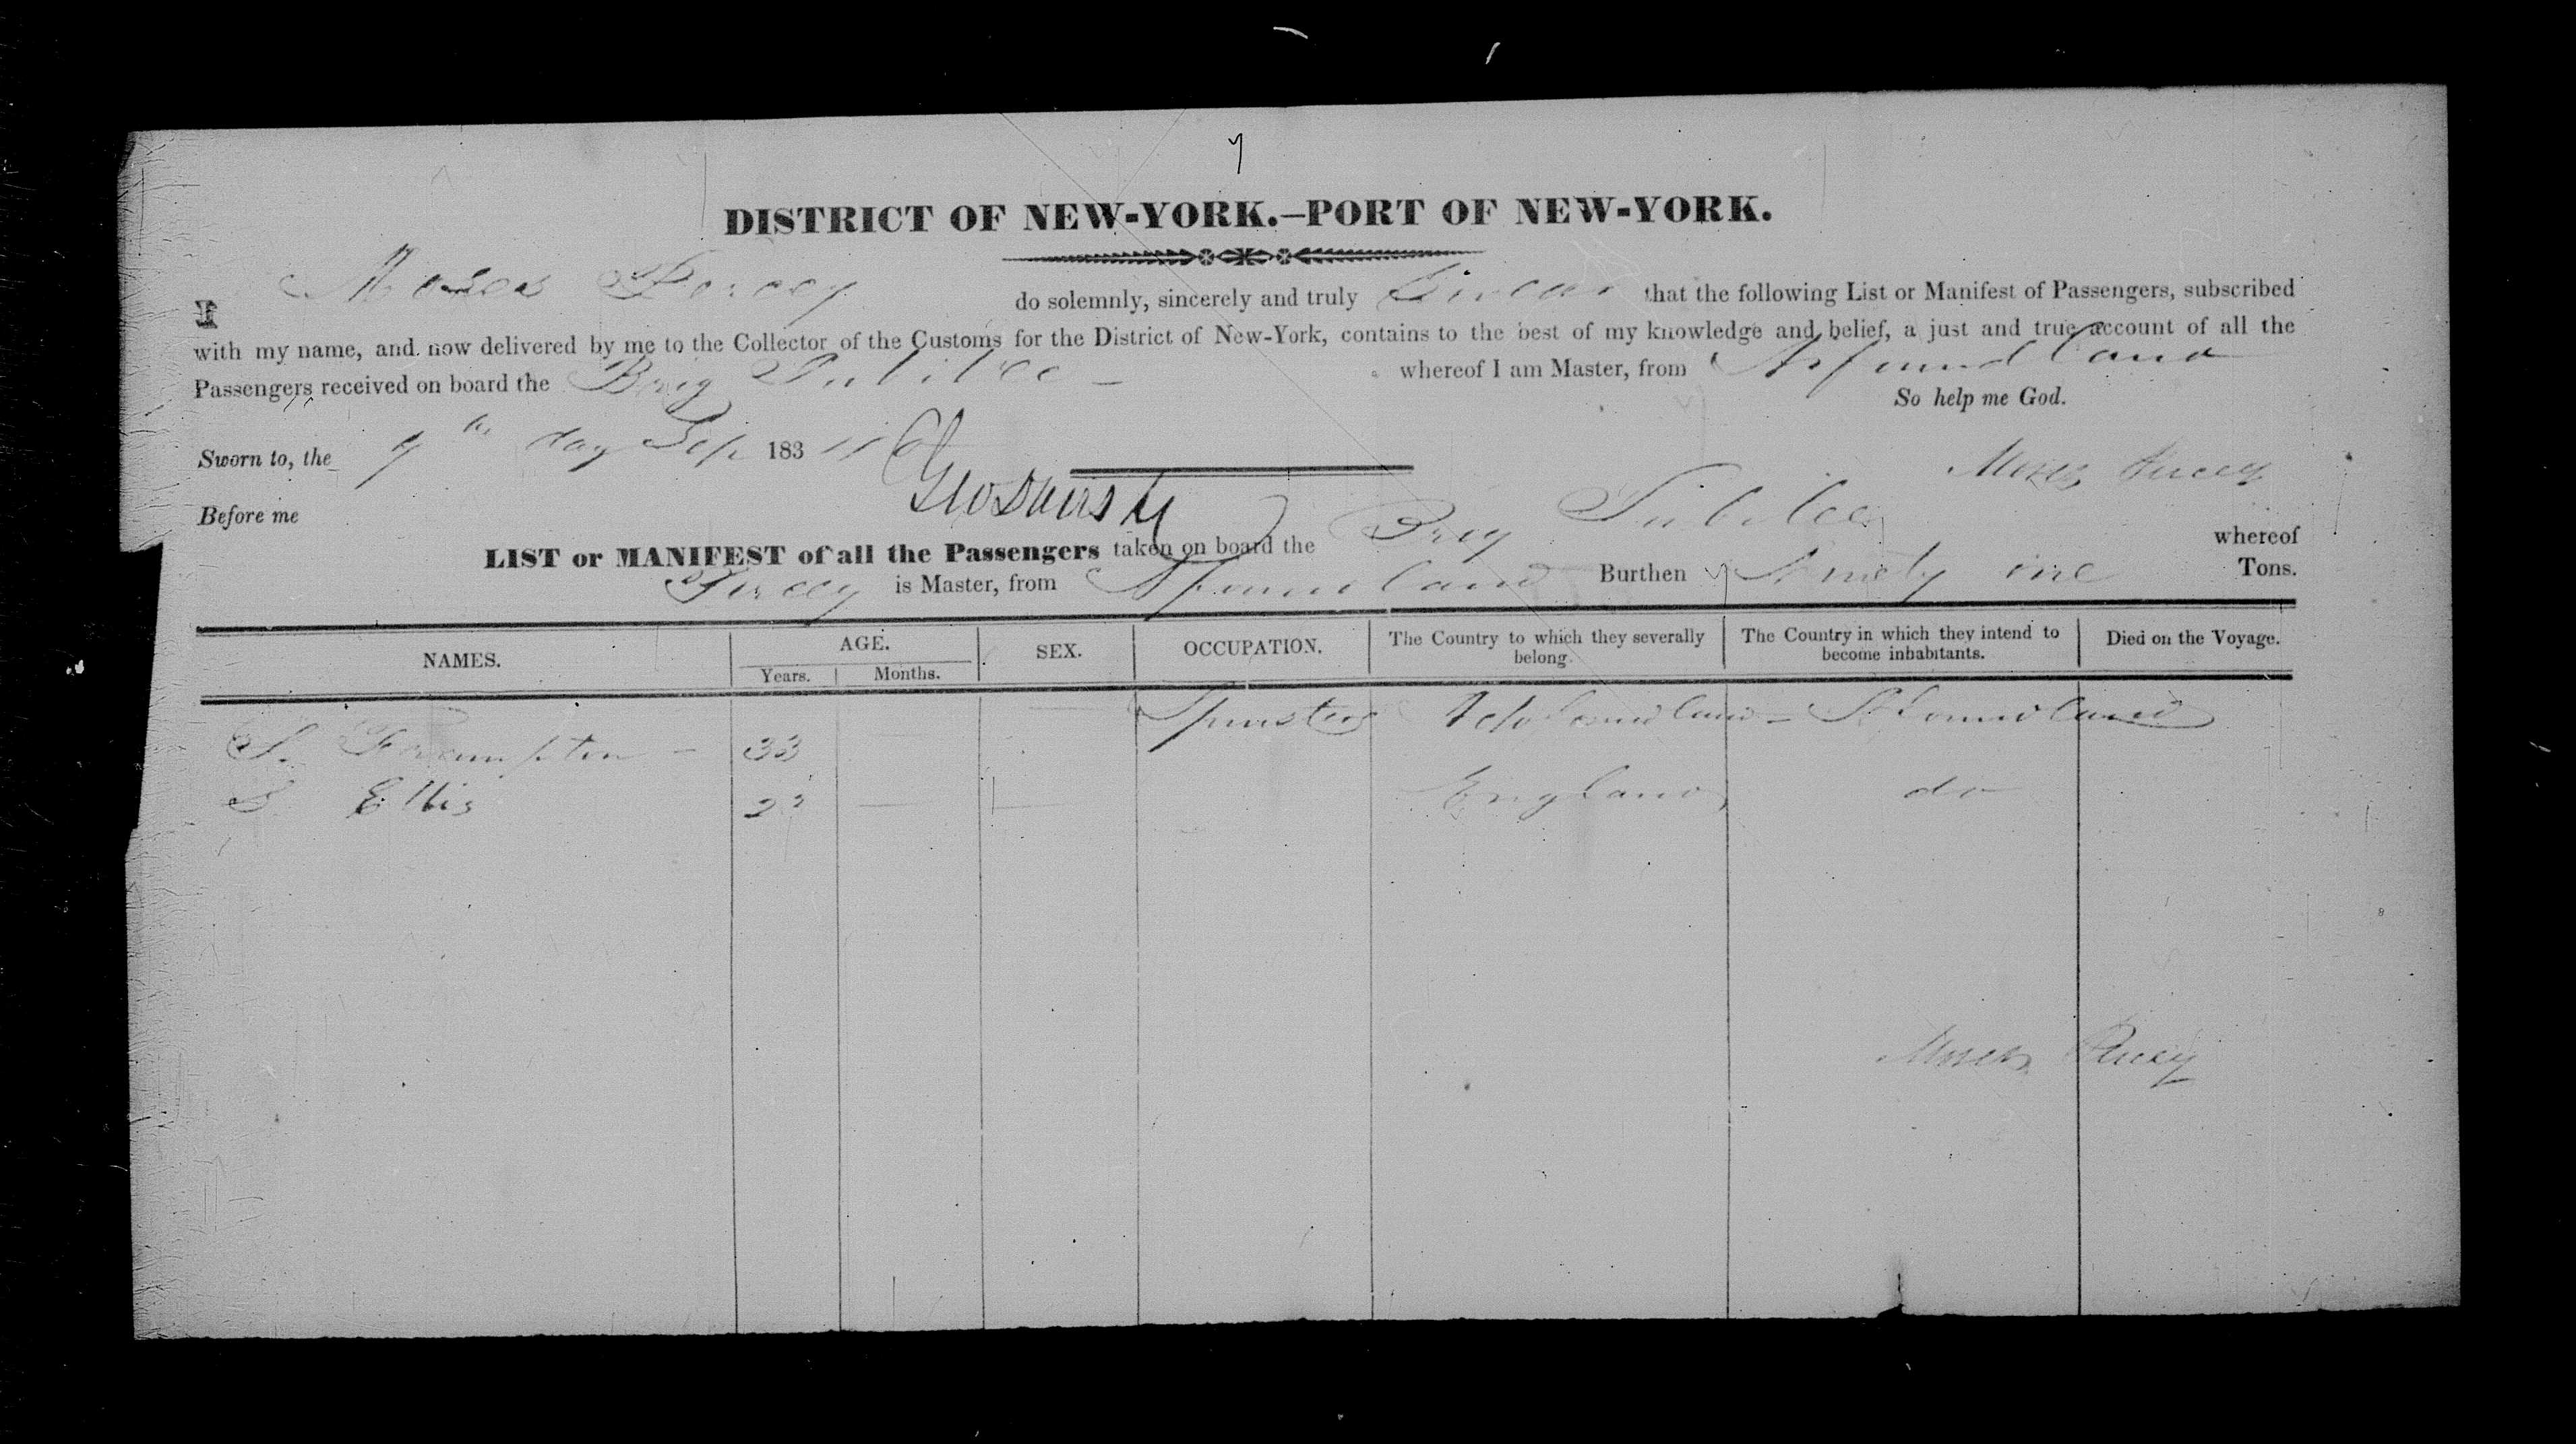 DISTRICT OF NEW-YORK.—PORT OF NEW-YORK.
I Moses Percey do solemnly, sincerely and truly Swear that the following List or Manifest of Passengers, subscribed
with my name, and now delivered by me to the Collector of the Customs for the District of New-York, contains to the best of my knowledge and belief, a just and true account of all the
Passengers received on board the Brig Jubilee whereof I am Master, from Nfoundland
So help me God.
Sworn to, the day Sep 183
Moses Percey
Before me
LIST or MANIFEST of all the Passengers taken on board the Brig Jubilee whereof
Percey is Master, from Nfoundland Burthen Ninety one Tons.
NAMES. AGE. SEX. OCCUPATION. The Country to which they severally belong. The Country in which they intend to become inhabitants. Died on the Voyage.
Years. Months.
S. Frampton 33 Spinster Nfoundland
S Ellis England do
Moses Percey